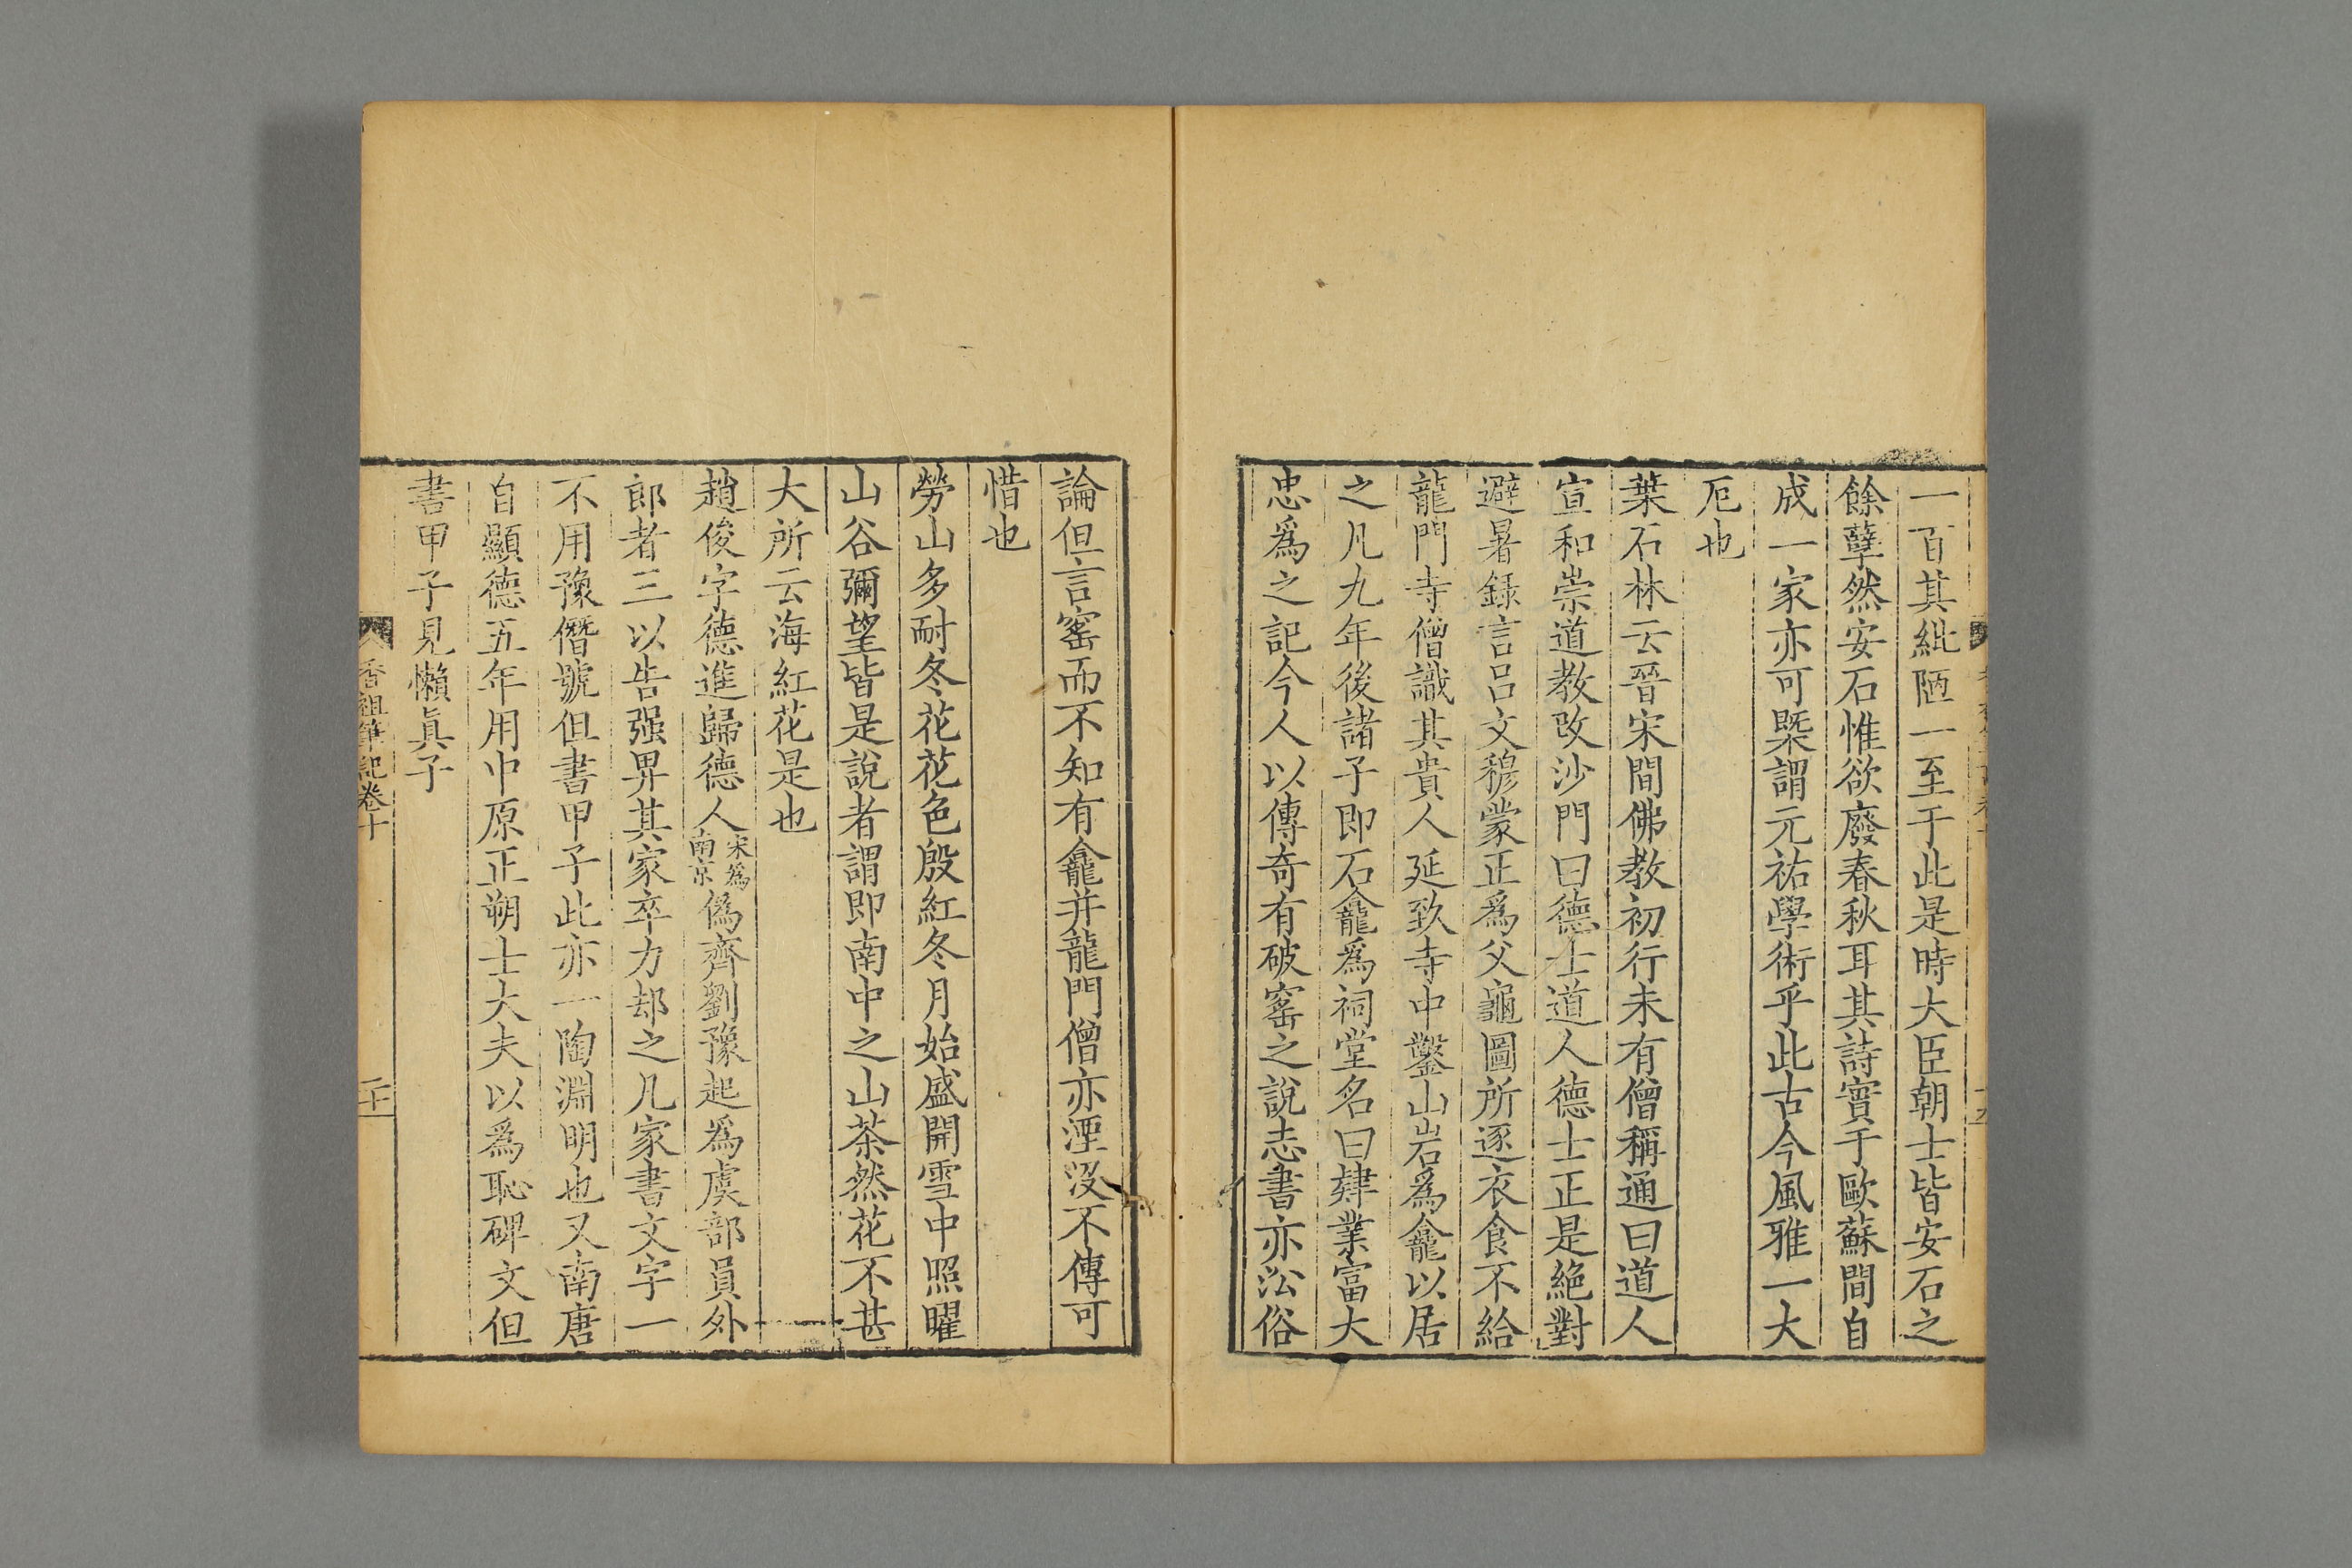 一百其紕陋一至于此是時大臣朝士皆安石之
餘孽然安石惟欲廢春秋耳其詩實于歐蘇間自
成一家亦可槩謂元祐學術乎此古今風雅一大
厄也
葉石林云晉宋間佛教初行未有僧稱通曰道人
宣和崇道教改沙門曰德士道人德士正是絶對
避暑錄言呂文穆蒙正爲父龜圖所逐衣食不給
龍門寺僧識其貴人延致寺中鑿山岩爲龕以居
之凡九年後諸子即石龕爲祠堂名曰肄業富大
忠爲之記今人以傳奇有破窰之說志書亦沿俗
論但言窰而不知有龕并龍門僧亦湮没不傳可
惜也
勞山多耐冬花花色殷紅冬月始盛開雪中照曜
山谷彌望皆是說者謂即南中之山茶然花不甚
大所云海紅花是也
趙俊字德進歸德人宋爲南京僞齊劉豫起爲虞部員外
郎者三以告强畀其家卒力却之凡家書文字一
不用豫僭號但書甲子此亦一陶淵明也又南唐
自顯德五年用中原正朔士大夫以爲恥碑文但
書甲子見懶眞子
香祖筆記卷十
二十